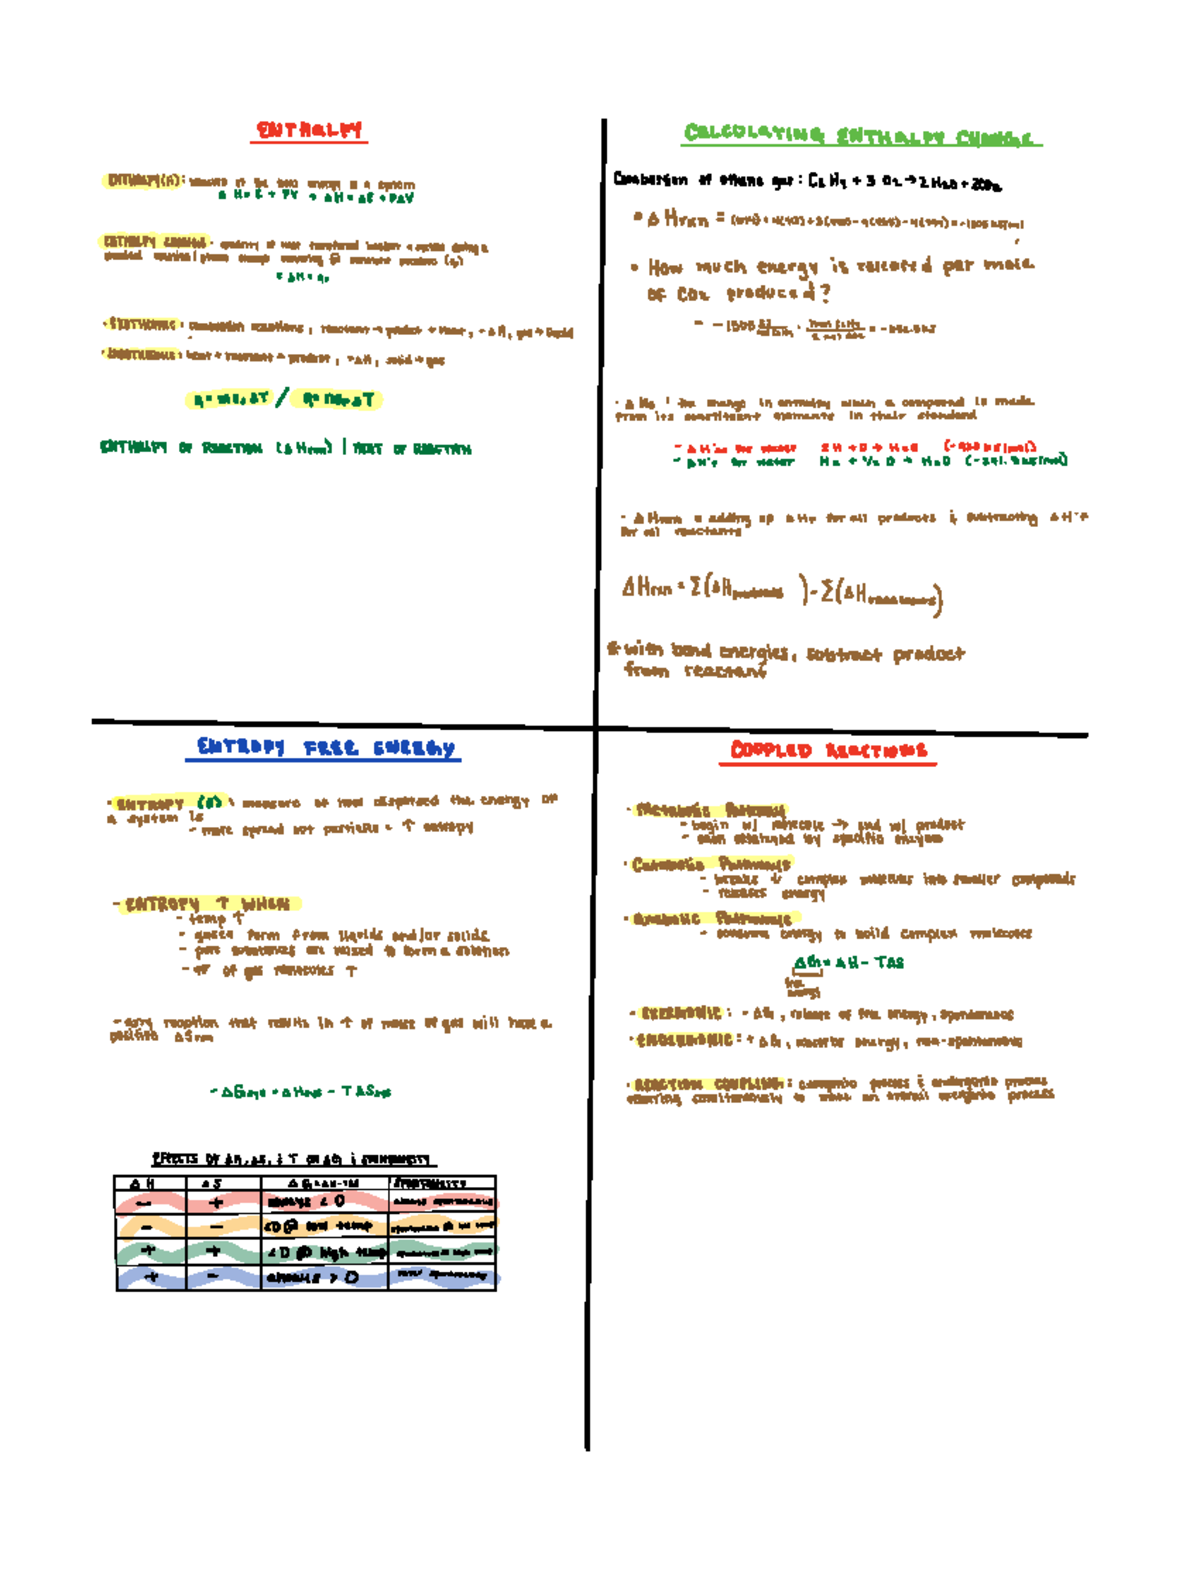 ENTHALPY
ENTHALPY(H): measure of the total energy in a system
ΔH = E + PV → ΔH = ΔE + PΔV
ENTHALPY CHANGE: quantity of heat transferred
product (qp)
= ΔH = qp
reactions, reactant → product + heat, -ΔH, gas → liquid
heat + reactant → product, +ΔH, solid → gas
q = mc, ΔT / q = ΔT
ENTHALPY OF REACTION (ΔHrxn) | HEAT OF REACTION
CALCULATING ENTHALPY CHANGE
Combustion of ethene gas: C2 H4 + 3 O2 → 2 H2O + 2CO2
• ΔHrxn =
• How much energy is released per mole
of CO2 produced?
- ΔHf: the change in enthalpy when a compound is made
from its constituent elements in their standard
for water 2H + O → H2O
- ΔH°f for water H2 + 1/2 O → H2O
- ΔHrxn = adding up ΔHf for all products & subtracting ΔH°f
for all reactants
ΔHrxn = Σ(ΔHproducts) - Σ(ΔHreactants)
* with bond energies, subtract product
from reactant
ENTROPY FREE ENERGY
- ENTROPY (S): measure of how dispersed the energy of
a system is
- more spread out particles = ↑ entropy
- ENTROPY ↑ WHEN
- temp ↑
- gases form from liquids and/or solids
- pure substances are mixed to form a solution
- # of gas molecules ↑
- any reaction that results in ↑ of moles of gas will have a
positive ΔSrxn
- ΔGsys = ΔHsys - TΔSsys
EFFECTS OF ΔH, ΔS, & T ON ΔG & SPONTANEITY
ΔH ΔS ΔG = ΔH-TΔS SPONTANEITY
- + always < 0 always spontaneous
- - <0 @ low temp spontaneous @ low temp
+ + <0 @ high temp spontaneous @ high temp
+ - always > 0 never spontaneous
COUPLED REACTIONS
- Metabolic Pathways
- begin w/ molecule → end w/ product
- each catalyzed by specific enzyme
- Catabolic Pathways
- breaks ↓ complex molecules into smaller compounds
- releases energy
- Anabolic Pathways
- consume energy to build complex molecules
ΔG = ΔH - TΔS
free
energy
- EXERGONIC: - ΔG, release of free energy, spontaneous
- ENDERGONIC: + ΔG, energy, non-spontaneous
- REACTION COUPLING: exergonic process & endergonic process
occurring simultaneously to make an overall exergonic process